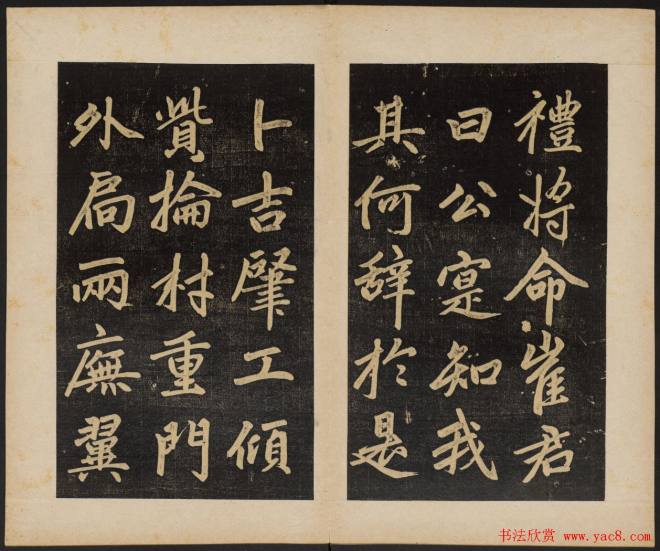 禮将命崔君
曰公寔知我
其何辞於是
卜吉肇工傾
貲掄材重門
外扃兩廡翼
书法欣赏 www.yac8.com